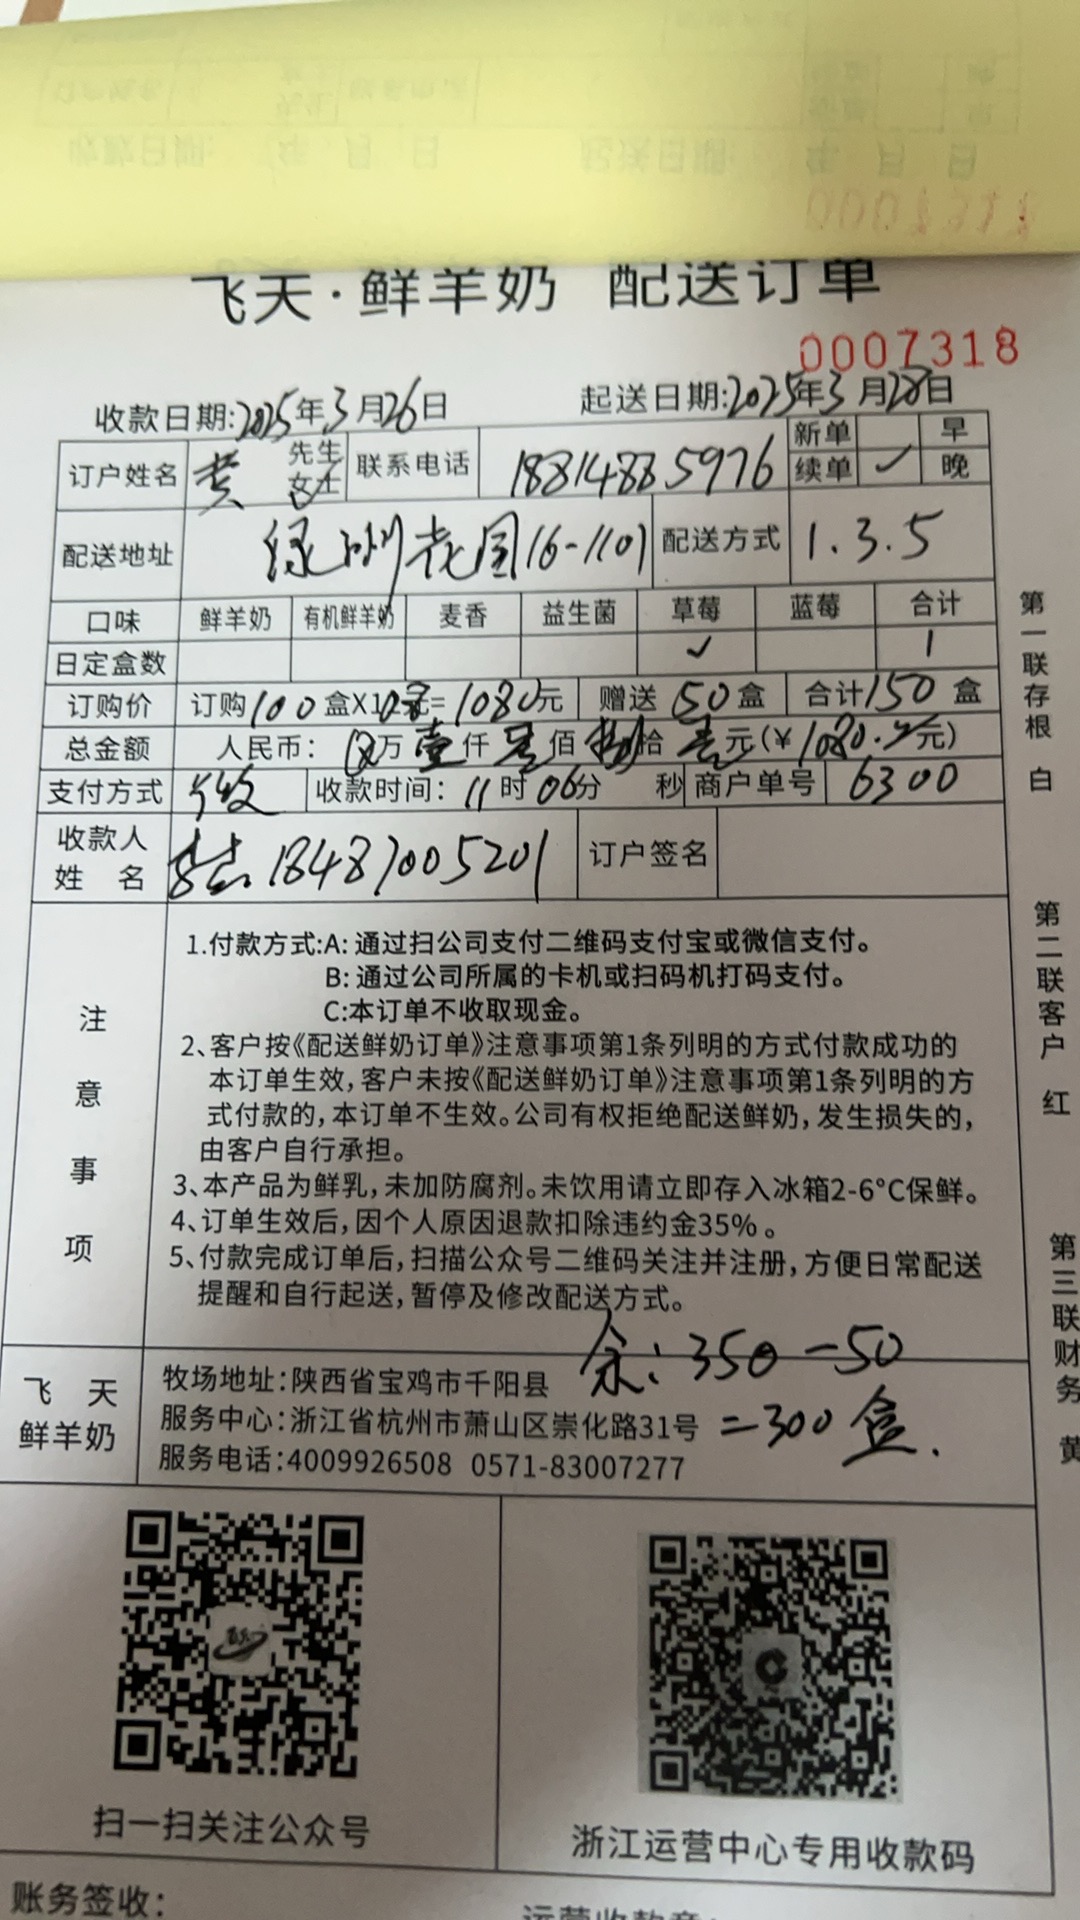 飞天·鲜羊奶 配送订单
0007318
收款日期:2025年3月26日 起送日期:2025年3月28日
订户姓名 黄 先生 女士 联系电话 18814885976 新单 续单 ✓ 早 晚
配送地址 绿洲花园16-1101 配送方式 1.3.5
口味 鲜羊奶 有机鲜羊奶 麦香 益生菌 草莓 蓝莓 合计
日定盒数 ✓ 1
订购价 订购100盒X10.8元=1080元 赠送50盒 合计150盒
总金额 人民币: 万壹仟零佰捌拾零元(¥1080.元)
支付方式 收款时间:11时06分 秒 商户单号 6300
收款人姓名 18487005201 订户签名
注意事项
1.付款方式:A:通过扫公司支付二维码支付宝或微信支付。
B:通过公司所属的卡机或扫码机打码支付。
C:本订单不收取现金。
2、客户按《配送鲜奶订单》注意事项第1条列明的方式付款成功的
本订单生效,客户未按《配送鲜奶订单》注意事项第1条列明的方
式付款的,本订单不生效。公司有权拒绝配送鲜奶,发生损失的,
由客户自行承担。
3、本产品为鲜乳,未加防腐剂。未饮用请立即存入冰箱2-6°C保鲜。
4、订单生效后,因个人原因退款扣除违约金35%。
5、付款完成订单后,扫描公众号二维码关注并注册,方便日常配送
提醒和自行起送,暂停及修改配送方式。
余:350-50
=300盒.
飞天
鲜羊奶
牧场地址:陕西省宝鸡市千阳县
服务中心:浙江省杭州市萧山区崇化路31号
服务电话:4009926508 0571-83007277
扫一扫关注公众号
浙江运营中心专用收款码
账务签收:
运营收款章:
第一联存根 白
第二联客户 红
第三联财务 黄